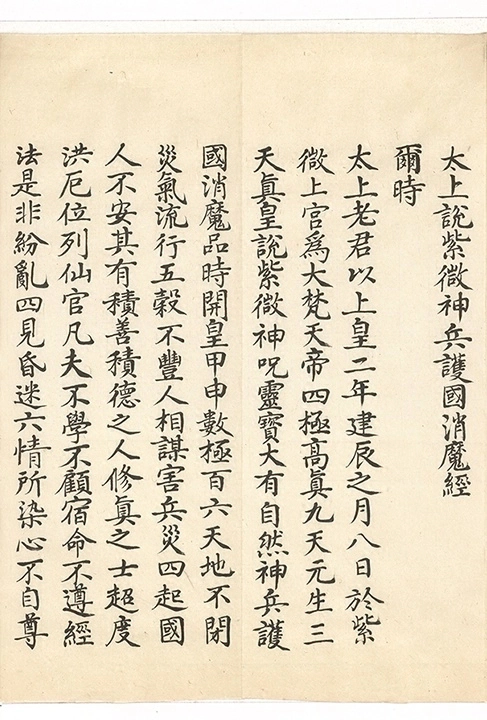 太上說紫微神兵護國消魔經
爾時
太上老君以上皇二年建辰之月八日於紫
微上宮爲大梵天帝四極高眞九天元生三
天眞皇說紫微神呪靈寶大有自然神兵護
國消魔品時開皇甲申數極百六天地不閉
災氣流行五穀不豐人相謀害兵災四起國
人不安其有積善積德之人修眞之士超度
洪厄位列仙官凡夫不學不顧宿命不遵經
法是非紛亂四見昏迷六情所染心不自尊